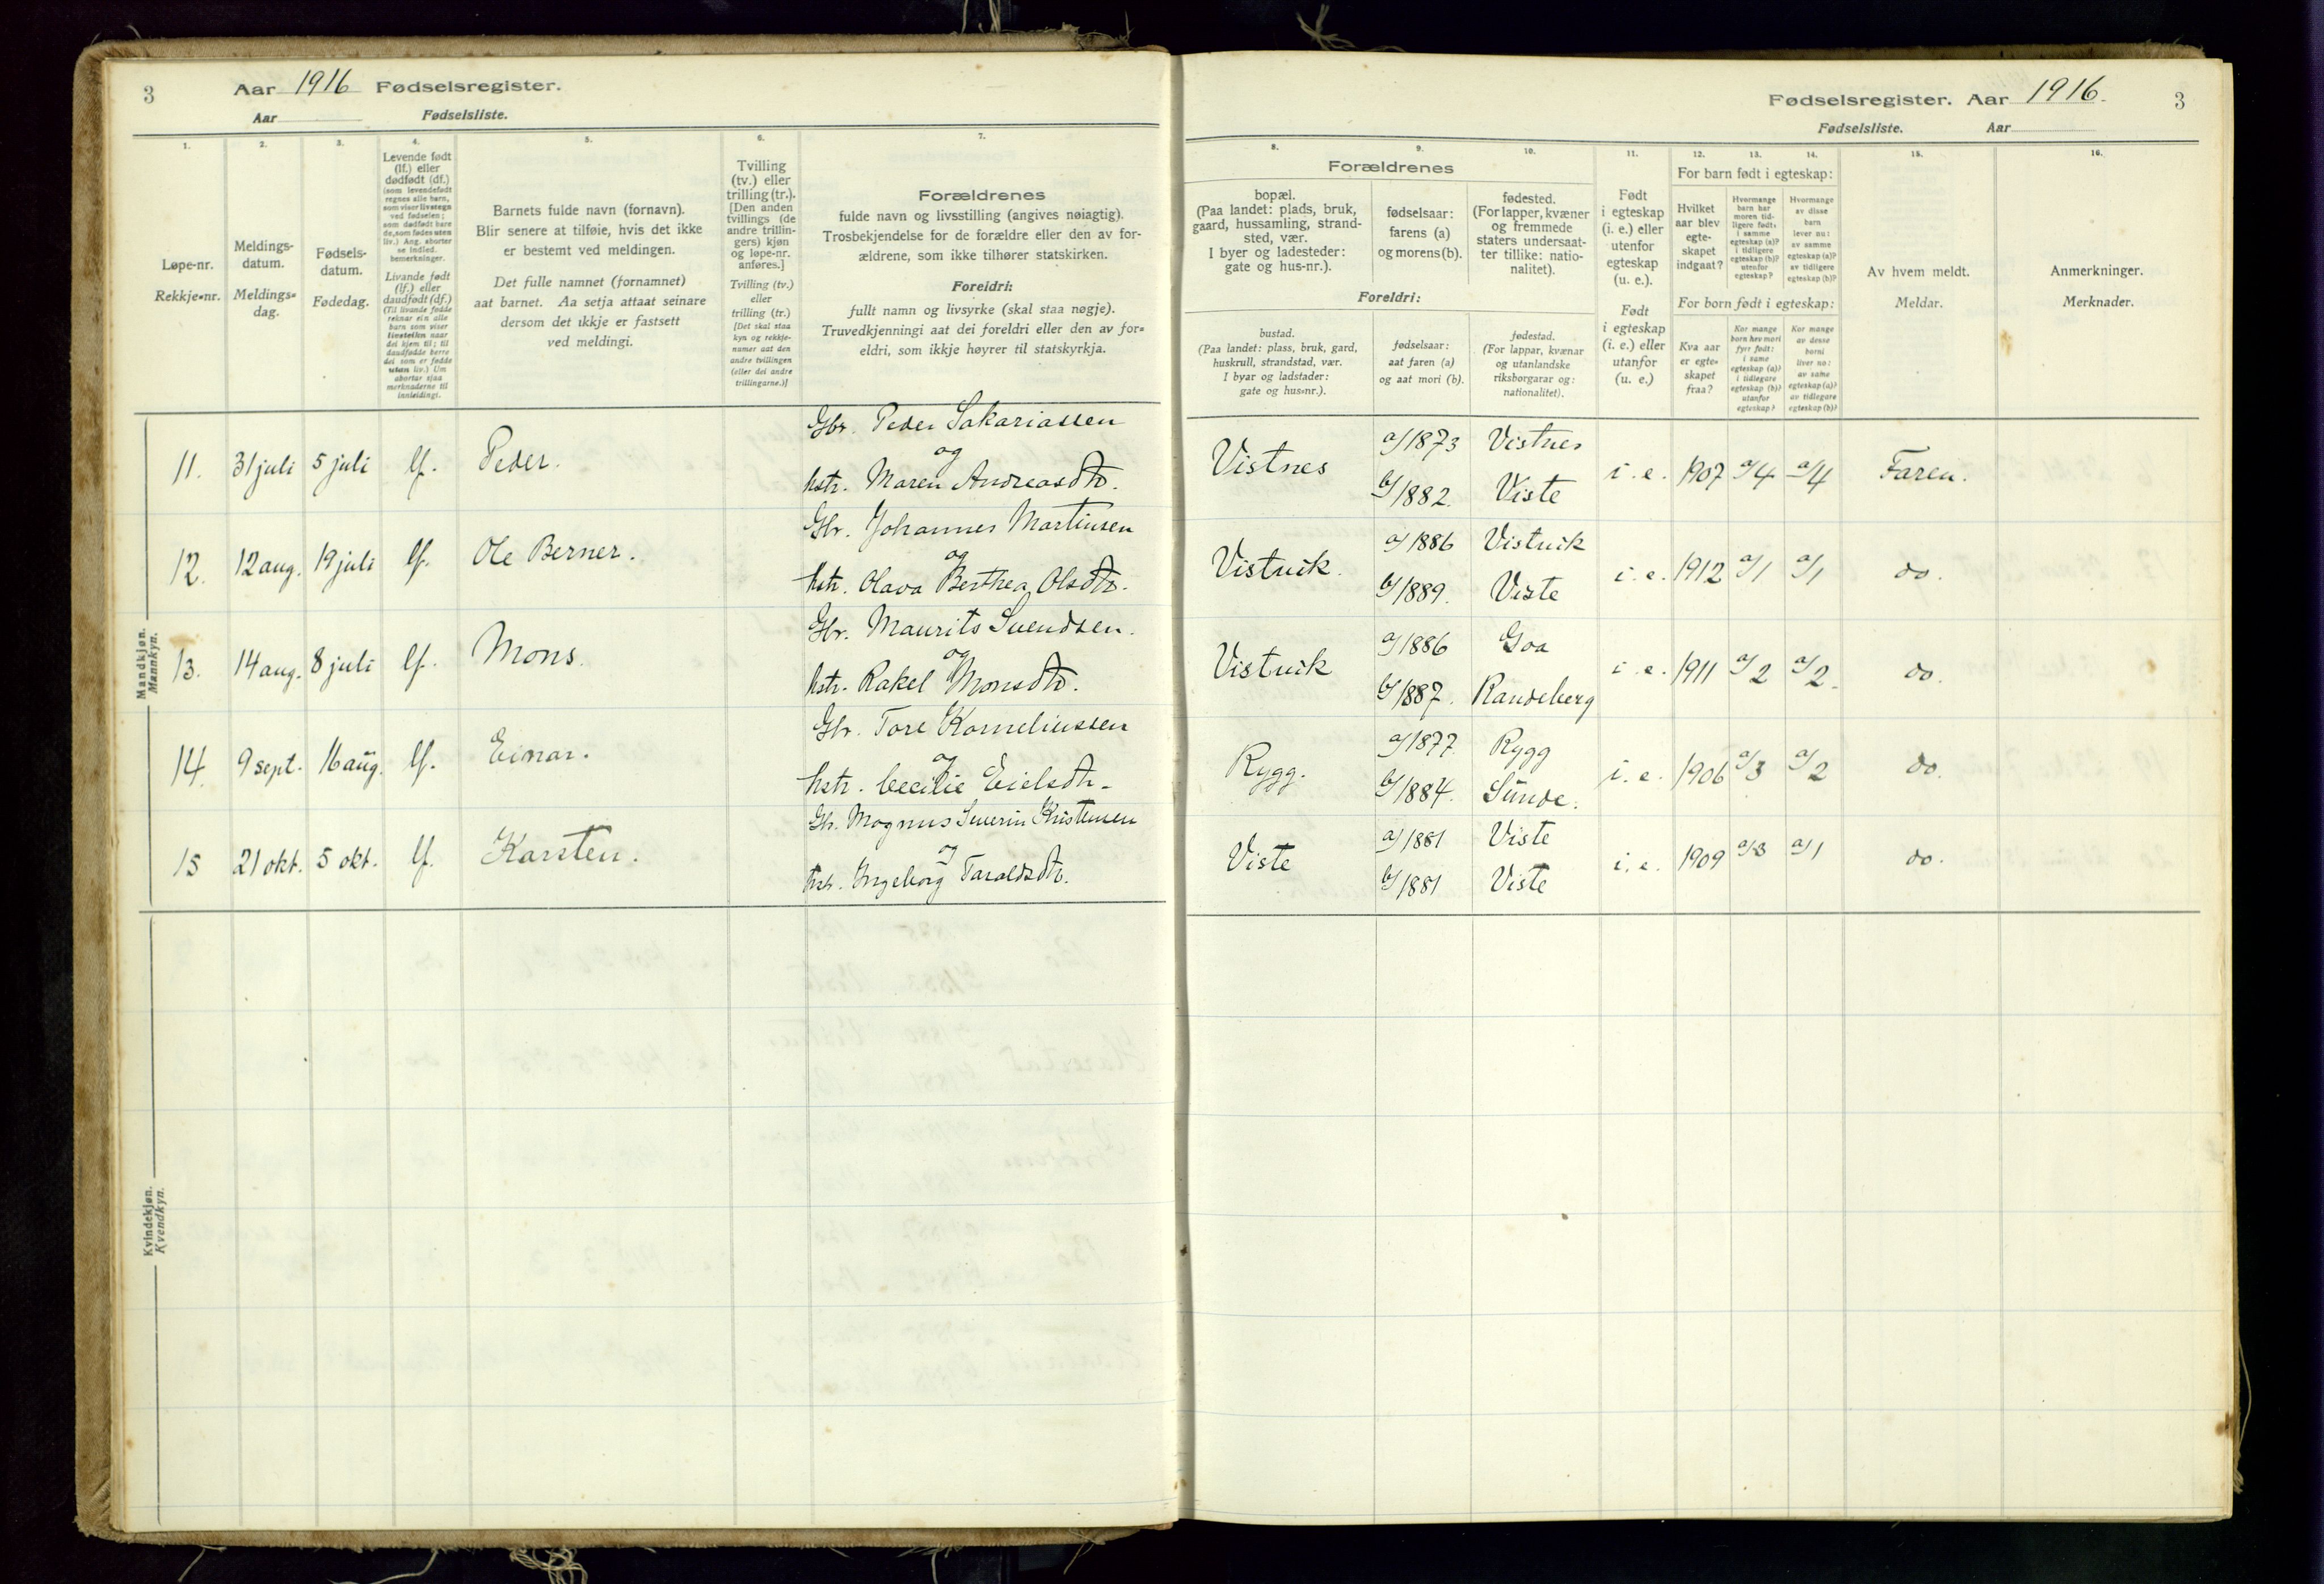 3 Aar 1916 Fødselsregister.
Aar Fødselsliste.
1.
Løpe-nr.
Rekkje-nr.
2.
Meldings-
datum.
Meldings-
dag.
3.
Fødsels-
datum.
Fødedag.
4.
Levende født
(lf.) eller
dødfødt (df.)
(som levendefødt
regnes alle barn,
som viser livstegn
ved fødselen;
som dødfødt bare
de, som fødes uten
liv.) Ang. aborter
se indled.
bemerkninger.
Livande født
(lf.) eller
daudfødt (df.)
(Til livande fødde
reknar ein alle
barn som viser
livsteikn naar
dei kjem til; til
daudfødde berre
dei som er fødde
utan liv.) Um
abortar sjaa
merknaderne til
innleidingi.
5.
Barnets fulde navn (fornavn).
Blir senere at tilføie, hvis det ikke
er bestemt ved meldingen.
Det fulle namnet (fornamnet)
aat barnet. Aa setja attaat seinare
dersom det ikkje er fastsett
ved meldingi.
6.
Tvilling
(tv.) eller
trilling (tr.).
[Den anden
tvillings (de
andre trillin-
gers) kjøn
og løpe-nr.
anføres.]
Tvilling (tv.)
eller
trilling (tr.)
[Det skal staa
kyn og rekkje-
numer aat den
andre tvillingen
(eller dei andre
trillingarne.)]
7.
Forældrenes
fulde navn og livsstilling (angives nøiagtig).
Trosbekjendelse for de forældre eller den av for-
ældrene, som ikke tilhører statskirken.
Foreldri:
fullt namn og livsyrke (skal staa nøgje).
Truvedkjenningi aat dei foreldri eller den av for-
eldri, som ikkje høyrer til statskyrkja.
Mandkjøn.
Mannkyn.
Gbr. Peder Sakariassen
11. 31 juli 5 juli lf. Peder. og
hstr. Maren Andreasdtr.
Gbr. Johannes Martinsen
12. 12 aug. 19 juli lf. Ole Berner. og
hstr. Olava Berthea Olsdtr.
Gbr. Maurits Svendsen.
13. 14 aug. 8 juli lf. Mons. og
hstr. Rakel Monsdtr.
Gbr. Tore Korneliussen
14. 9 sept. 16 aug. lf. Einar. og
hstr. Cecilie Eielsdtr.
Gbr. Magnus Severin Kristensen
15 21 okt. 5 okt. lf. Karsten. og
hstr. Ingeborg Taraldsdtr.
Kvindekjøn.
Kvendkyn.
Fødselsregister. Aar 1916. 3
Fødselsliste. Aar
Forældrenes
8.
bopæl.
(Paa landet: plads, bruk,
gaard, hussamling, strand-
sted, vær.
I byer og ladesteder:
gate og hus-nr.).
9.
fødselsaar:
farens (a)
og morens (b).
10.
fødested.
(For lapper, kvæner
og fremmede
staters undersaat-
ter tillike: natio-
nalitet).
Foreldri:
bustad.
(Paa landet: plass, bruk, gard,
huskrull, strandstad, vær.
I byar og ladstader:
gate og hus-nr.).
fødselsaar:
aat faren (a)
og aat mori (b).
fødestad.
(For lappar, kvænar
og utanlandske
riksborgarar og:
nationalitet).
11.
Født
i egteskap
(i. e.) eller
utenfor
egteskap
(u. e.).
Født
i egteskap
(i. e.) eller
utanfor
(u. e.)
12. 13. 14.
For barn født i egteskap:
Hvilket
aar blev
egte-
skapet
indgaat?
Hvormange
barn har
moren tid-
ligere født:
i samme
egteskap (a)?
i tidligere
egteskap (b)?
utenfor
egteskap?
Hvormange
av disse
barn
lever nu:
av samme
egteskap (a)?
av tidligere
egteskap (b)?
For born født i egteskap:
Kva aar
er egte-
skapet
fraa?
Kor mange
born hev mori
fyrr født:
i same
egteskap (a)?
i tidlegare
egteskap (b)?
utanfor
egteskap?
Kor mange
av desse
borni
liver no:
av same
egteskap (a)?
av tidlegare
egteskap (b)?
15.
Av hvem meldt.
Meldar.
16.
Anmerkninger.
Merknader.
a/1873 Vistnes
Vistnes i. e. 1907 a/4 a/4 Faren.
b/1882. Viste
a/1886 Vistvik
Vistvik. i. e. 1912 a/1 a/1 do.
b/1889. Viste
a/1886 Goa
Vistvik i. e. 1911 a/2 a/2. do.
b/1887. Randeberg
a/1877. Rygg
Rygg. i. e. 1906 a/3 a/2 do.
b/1884. Sunde.
a/1881 Viste
Viste i. e. 1909 a/3 a/1 do.
b/1881 Viste